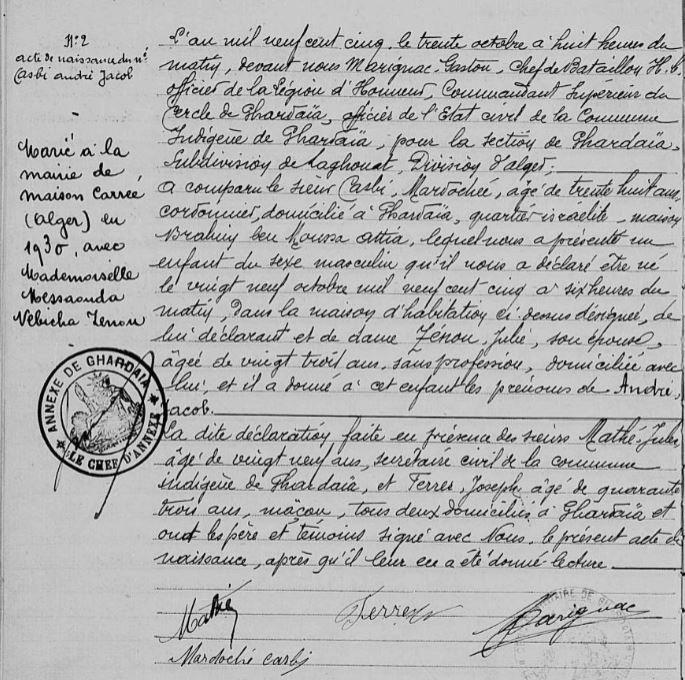 N° 2
acte de naissance du né
Casbi andré Jacob
Marié à la
mairie de
maison Carrée
(Alger) en
1930, avec
Mademoiselle
Messaouda
Nébicha Zenou
ANNEXE DE GHARDAIA
LE CHEF D'ANNEXE
L'an mil neuf cent cinq, le trente octobre à huit heures du
matin, devant nous Marignac Gaston, Chef de Bataillon H.C.
officier de la Légion d'Honneur, Commandant Supérieur du
Cercle de Ghardaïa, officier de l'Etat civil de la Commune
Indigène de Ghardaïa, pour la section de Ghardaïa,
Subdivision de Laghouat, Division d'alger;
A comparu le sieur Casbi, Mardochée, âgé de trente huit ans,
cordonnier, domicilié à Ghardaïa, quartier israelite, maison
Brahim ben Moussa attia, lequel nous a présenté un
enfant du sexe masculin qu'il nous a déclaré être né
le vingt neuf octobre mil neuf cent cinq à six heures du
matin, dans la maison d'habitation ci-dessus désignée, de
lui déclarant et de dame Zénou, Julie, son épouse,
âgée de vingt trois ans, sans profession, domiciliée avec
lui, et il a donné à cet enfant les prénoms de André,
Jacob.
La dite déclaration faite en présence des sieurs Mathé, Jules
âgé de vingt neuf ans, secrétaire civil de la commune
indigène de Ghardaïa, et Ferrer, Joseph, âgé de quarante
trois ans, maçon, tous deux domiciliés à Ghardaïa et
ont les père et témoins signé avec Nous, le présent acte de
naissance, après qu'il leur en a été donné lecture.
Mathé Ferrer Marignac
Mardoché Carbi